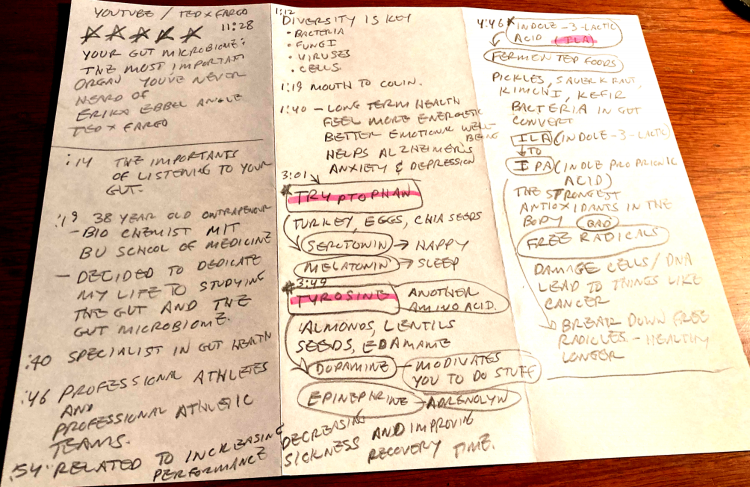 YOUTUBE / TED X FARGO
11:28
YOUR GUT MICROBIOME:
THE MOST IMPORTANT
ORGAN YOU'VE NEVER
HEARD OF
ERIKA EBBEL ANGLE
TED X FARGO
:14 THE IMPORTANTS
OF LISTENING TO YOUR
GUT.
:19 38 YEAR OLD
- BIO CHEMIST MIT
BU SCHOOL OF MEDICINE
- DECIDED TO DEDICATE
MY LIFE TO STUDYING
THE GUT AND THE
GUT MICROBIOME.
:40 SPECIALIST IN GUT HEALTH
:46 PROFESSIONAL ATHLETES
AND
PROFESSIONAL ATHLETIC
TEAMS.
:54 RELATED TO INCREASING
PERFORMANCE
1:12
DIVERSITY IS KEY
• BACTERIA
• FUNGI
• VIRUSES
• CELLS.
1:19 MOUTH TO COLIN.
1:40 - LONG TERM HEALTH
FEEL MORE ENERGETIC
BETTER EMOTIONAL WELL-
BEING
HELPS ALZHEIMER'S
ANXIETY & DEPRESSION
3:01
* TRYPTOPHAN
TURKEY, EGGS, CHIA SEEDS
SEROTONIN → HAPPY
MELATONIN → SLEEP
* 3:49
TYROSINE ANOTHER
AMINO ACID.
ALMONDS, LENTILS
SEEDS, EDAMAME
DOPAMINE - MODIVATES
YOU TO DO STUFF
EPINEPARINE - ADRENOLYN
DECREASING
SICKNESS AND IMPROVING
RECOVERY TIME.
4:46 * INDOLE-3-LACTIC
ACID (ILA)
FERMENTED FOODS
PICKLES, SAUERKRAUT,
KIMCHI, KEFIR
BACTERIA IN GUT
CONVERT
ILA (INDOLE-3-LACTIC)
TO
IPA (INDOLE PROPRIONIC
ACID)
THE STRONGEST
ANTIOXIDANTS IN THE
BODY BAD
FREE RADICALS
DAMAGE CELLS / DNA
LEAD TO THINGS LIKE
CANCER
BREAK DOWN FREE
RADICLES. - HEALTHY
LONGER